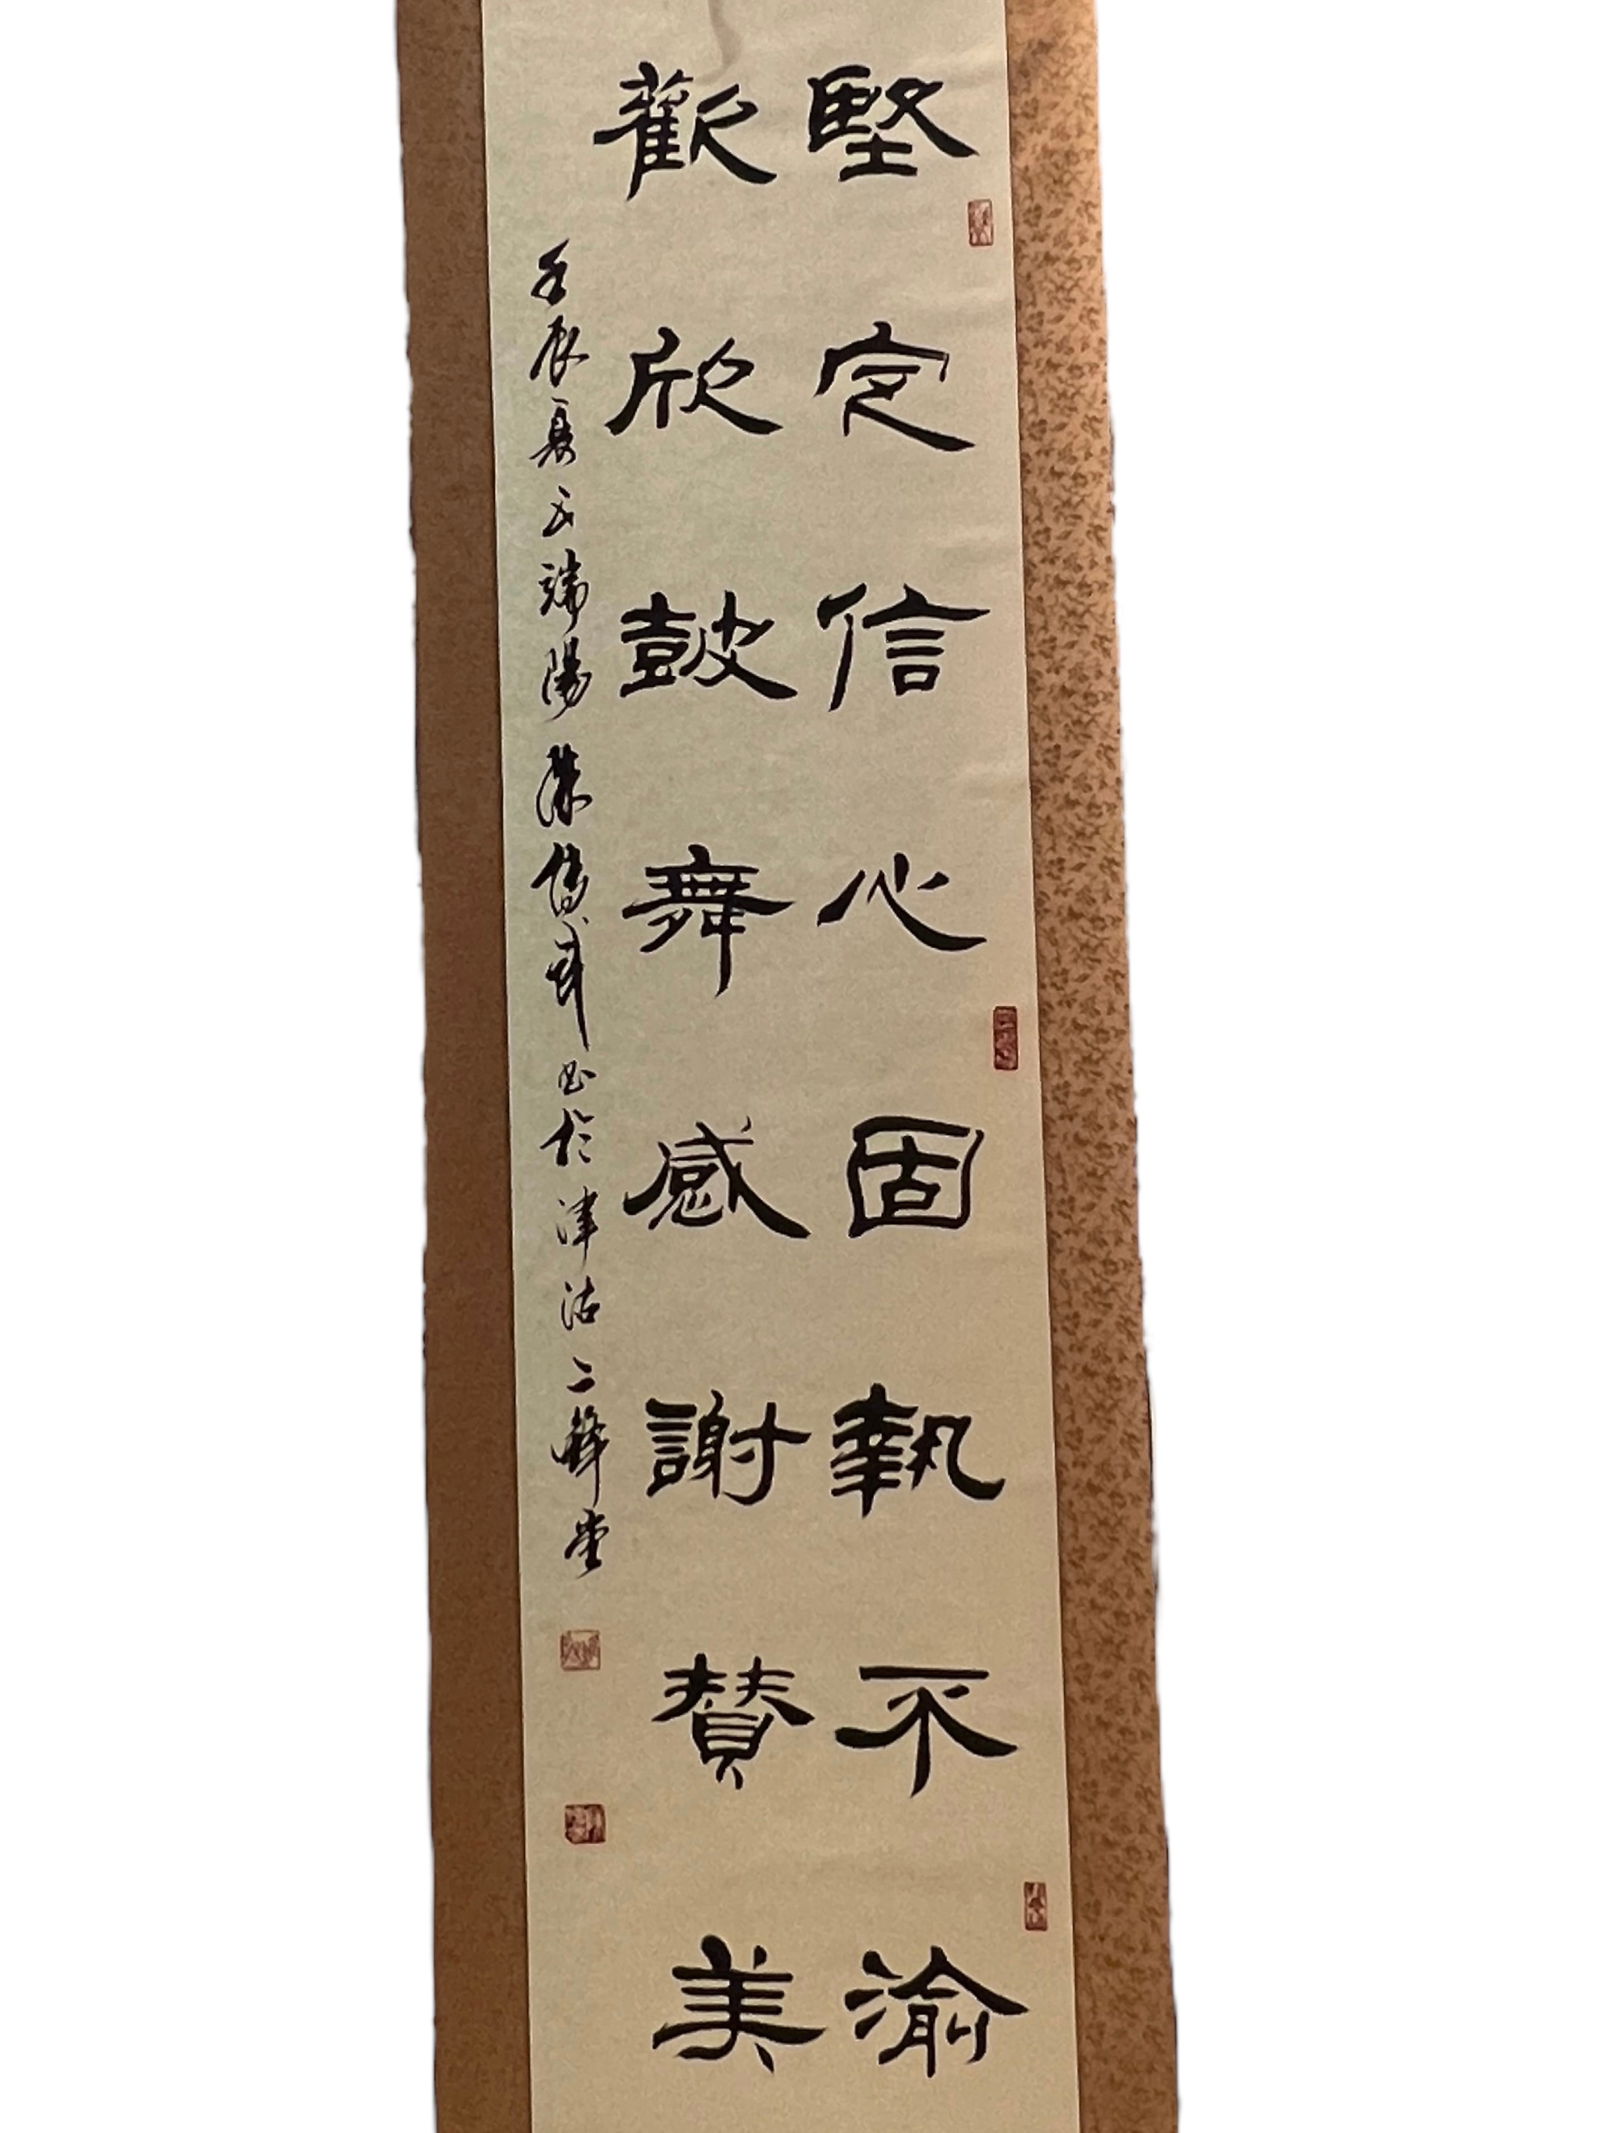 堅定信心固執不渝
歡欣鼓舞感謝讚美
壬辰夏五端陽陳傳武書於津沽二鋒堂